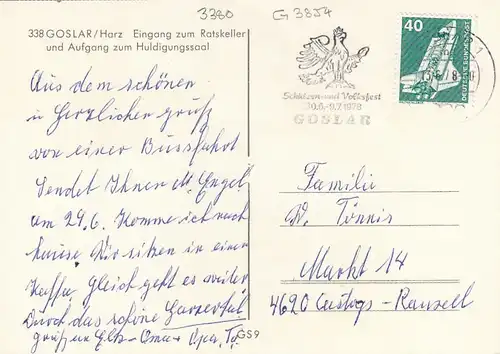 3380 G 3854
338 GOSLAR/Harz Eingang zum Ratskeller
und Aufgang zum Huldigungssaal
40
DEUTSCHE BUNDESPOST
Schützen und Volksfest
30.6.-9.7.1978
GOSLAR
Aus dem schönen
in Herzlichen gruß
von einer Bussfahrt
Sendet Ihnen M. Engel
am 29.6. Komme ich nach
hause. Wir sitzen in einer
Kaffee gleich geht es weiter
Durch das schöne Harzertal
grüß Oma Opa
GS 9
Familie
W. Tönnis
Markt 14
4620 Castrop-Rauxell